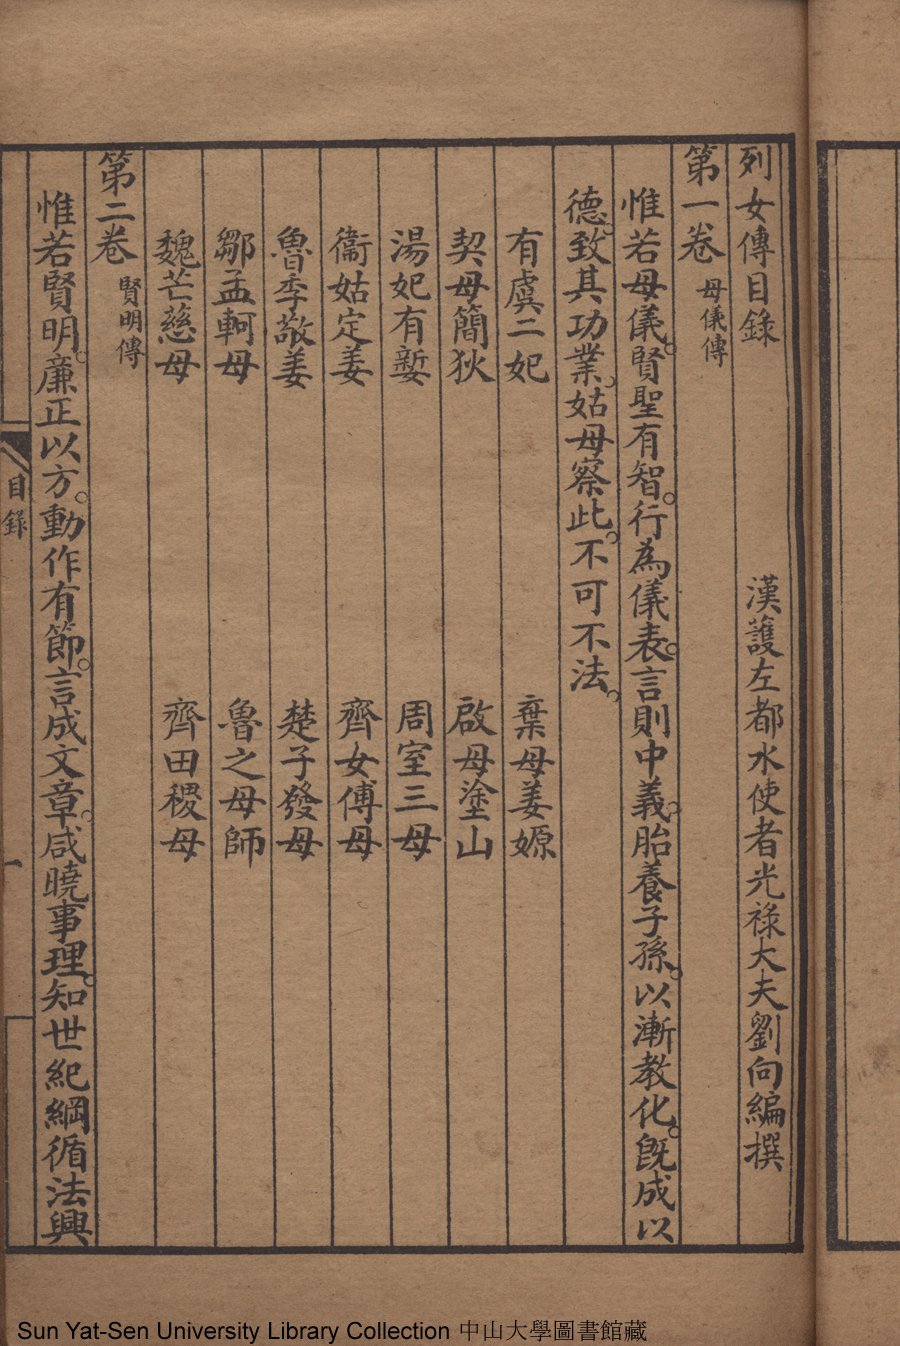 列女傳目錄 漢護左都水使者光祿大夫劉向編撰
第一卷 母儀傳
惟若母儀。賢聖有智。行為儀表。言則中義。胎養子孫。以漸教化。既成以
德。致其功業。姑母察此。不可不法。
有虞二妃 棄母姜嫄
契母簡狄 啟母塗山
湯妃有㜪 周室三母
衞姑定姜 齊女傅母
魯季敬姜 楚子發母
鄒孟軻母 魯之母師
魏芒慈母 齊田稷母
第二卷 賢明傳
惟若賢明。廉正以方。動作有節。言成文章。咸曉事理。知世紀綱循法興
目錄
一
Sun Yat-Sen University Library Collection 中山大學圖書館藏